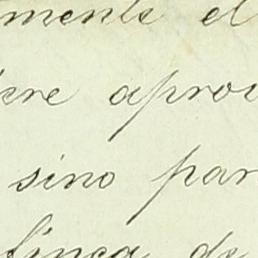 mente el
ere aprov
sino par
finca de